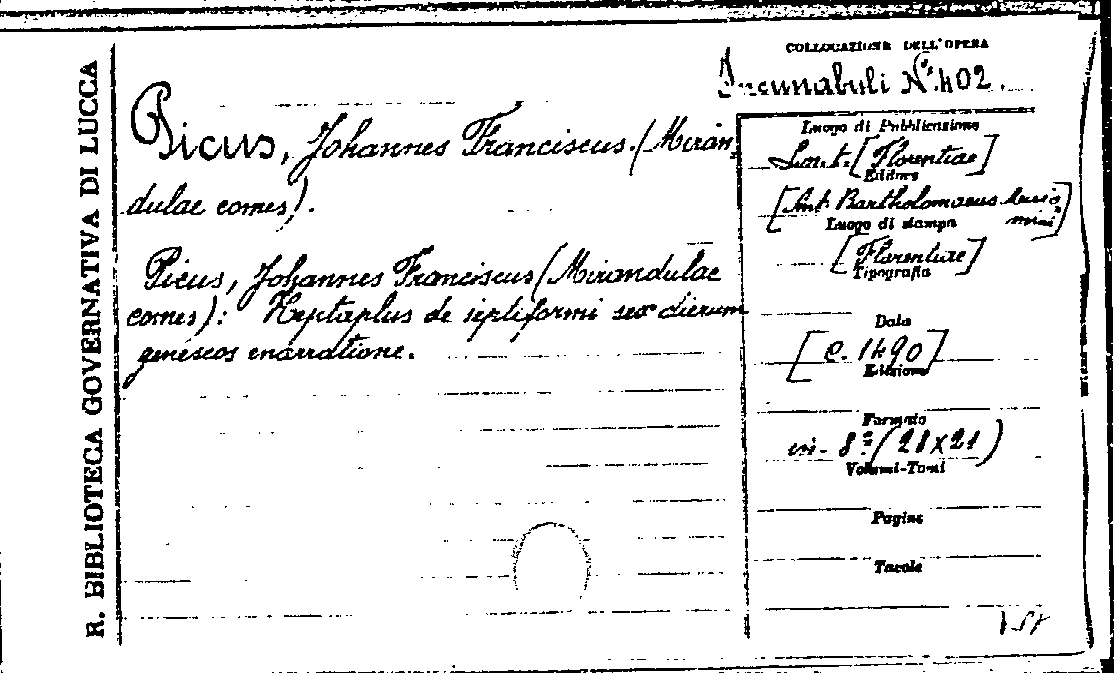 R. BIBLIOTECA GOVERNATIVA DI LUCCA
COLLOCAZIONE DELL'OPERA
Incunabuli N°. 402.
Picus, Johannes Franciscus. (Miran-
dulae comes).
Picus, Johannes Franciscus (Mirandulae
comes): Heptaplus de septiformi sex dierum
geneseos enarratione.
Luogo di Pubblicazione
S.n.t. [Florentiae]
Editore
[Ant. Bartholomaeus
Luogo di stampa
[Florentiae]
Tipografia
Data
[c. 1490]
Edizione
Formato
in-8° (28x21)
Volumi-Tomi
Pagine
Tavole